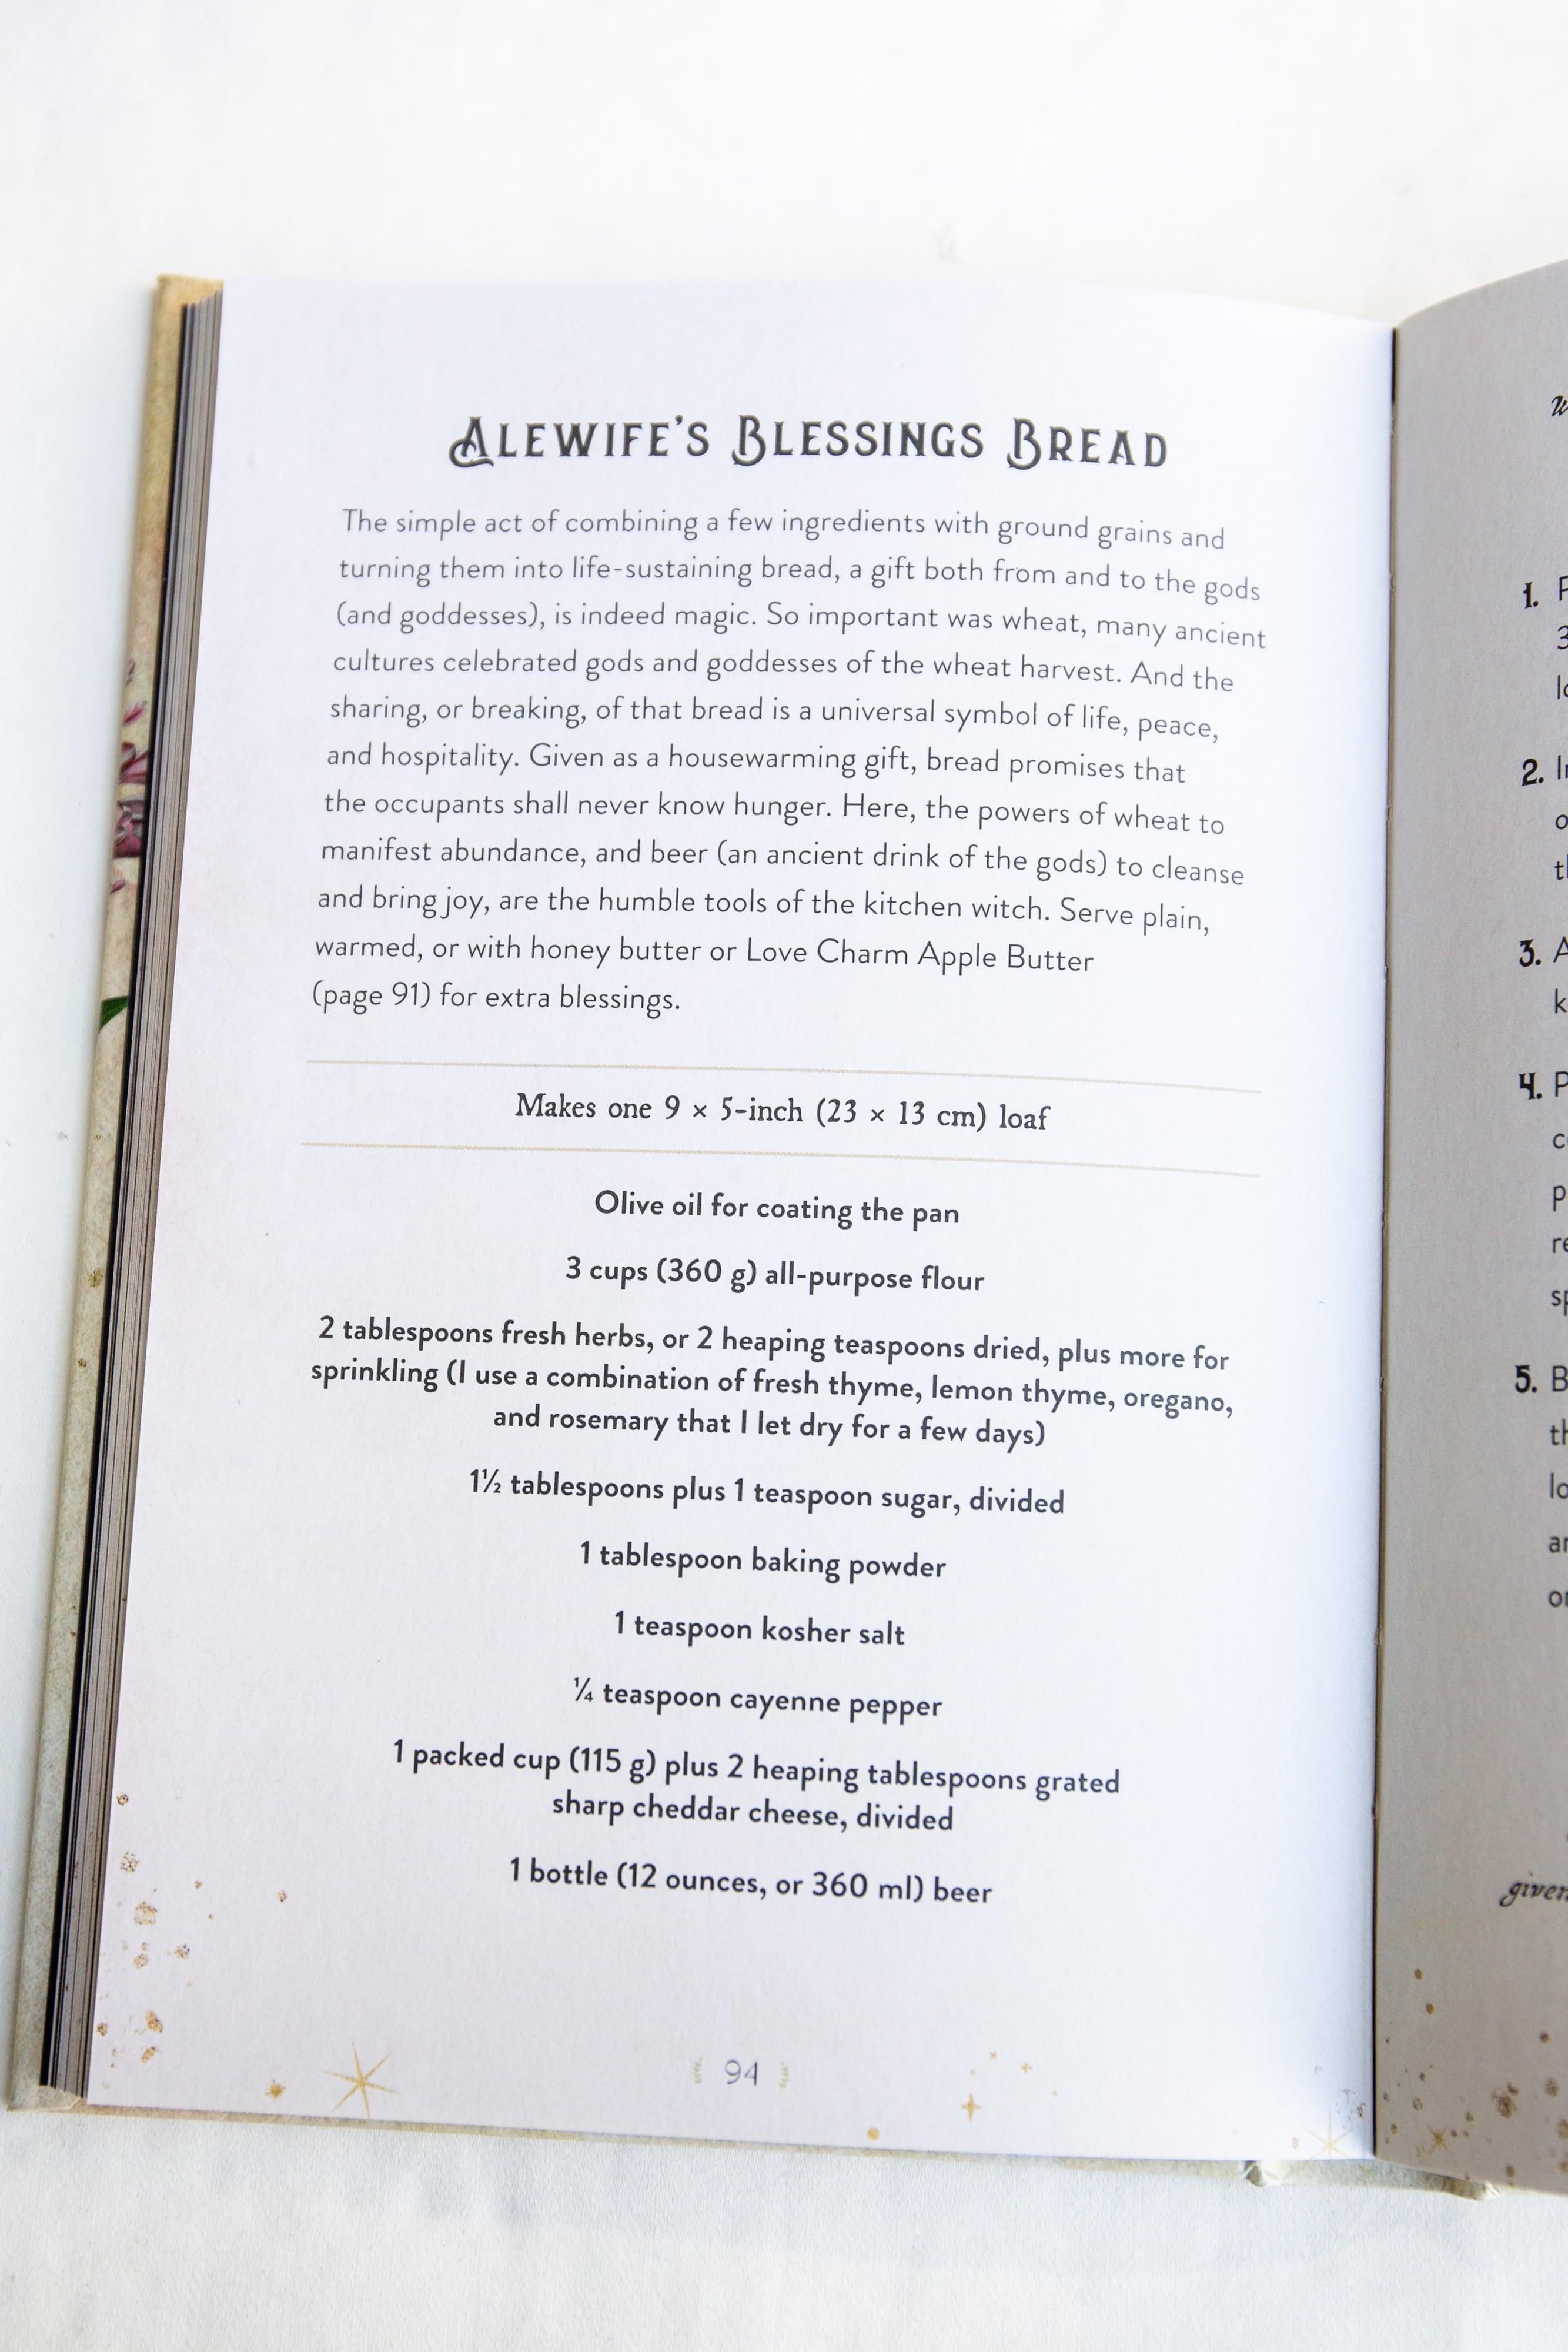 ALEWIFE'S BLESSINGS BREAD
The simple act of combining a few ingredients with ground grains and
turning them into life-sustaining bread, a gift both from and to the gods
(and goddesses), is indeed magic. So important was wheat, many ancient
cultures celebrated gods and goddesses of the wheat harvest. And the
sharing, or breaking, of that bread is a universal symbol of life, peace,
and hospitality. Given as a housewarming gift, bread promises that
the occupants shall never know hunger. Here, the powers of wheat to
manifest abundance, and beer (an ancient drink of the gods) to cleanse
and bring joy, are the humble tools of the kitchen witch. Serve plain,
warmed, or with honey butter or Love Charm Apple Butter
(page 91) for extra blessings.
Makes one 9 × 5-inch (23 × 13 cm) loaf
Olive oil for coating the pan
3 cups (360 g) all-purpose flour
2 tablespoons fresh herbs, or 2 heaping teaspoons dried, plus more for
sprinkling (I use a combination of fresh thyme, lemon thyme, oregano,
and rosemary that I let dry for a few days)
1½ tablespoons plus 1 teaspoon sugar, divided
1 tablespoon baking powder
1 teaspoon kosher salt
¼ teaspoon cayenne pepper
1 packed cup (115 g) plus 2 heaping tablespoons grated
sharp cheddar cheese, divided
1 bottle (12 ounces, or 360 ml) beer
94
1.
2.
3.
4.
5.
given